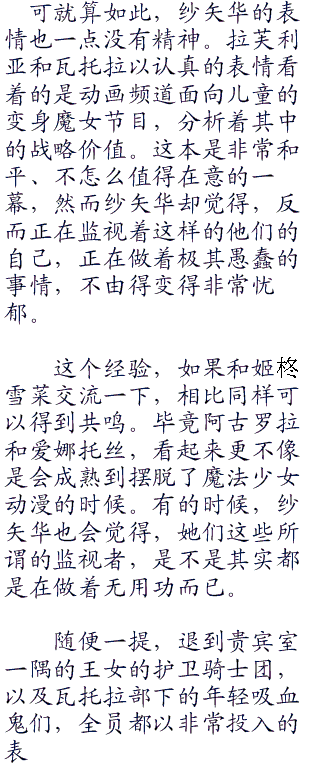 可就算如此，纱矢华的表
情也一点没有精神。拉芙利
亚和瓦托拉以认真的表情看
着的是动画频道面向儿童的
变身魔女节目，分析着其中
的战略价值。这本是非常和
平、不怎么值得在意的一
幕，然而纱矢华却觉得，反
而正在监视着这样的他们的
自己，正在做着极其愚蠢的
事情，不由得变得非常忧
郁。
这个经验，如果和姬柊
雪菜交流一下，相比同样可
以得到共鸣。毕竟阿古罗拉
和爱娜托丝，看起来更不像
是会成熟到摆脱了魔法少女
动漫的时候。有的时候，纱
矢华也会觉得，她们这些所
谓的监视者，是不是其实都
是在做着无用功而已。
随便一提，退到贵宾室
一隅的王女的护卫骑士团，
以及瓦托拉部下的年轻吸血
鬼们，全员都以非常投入的
表